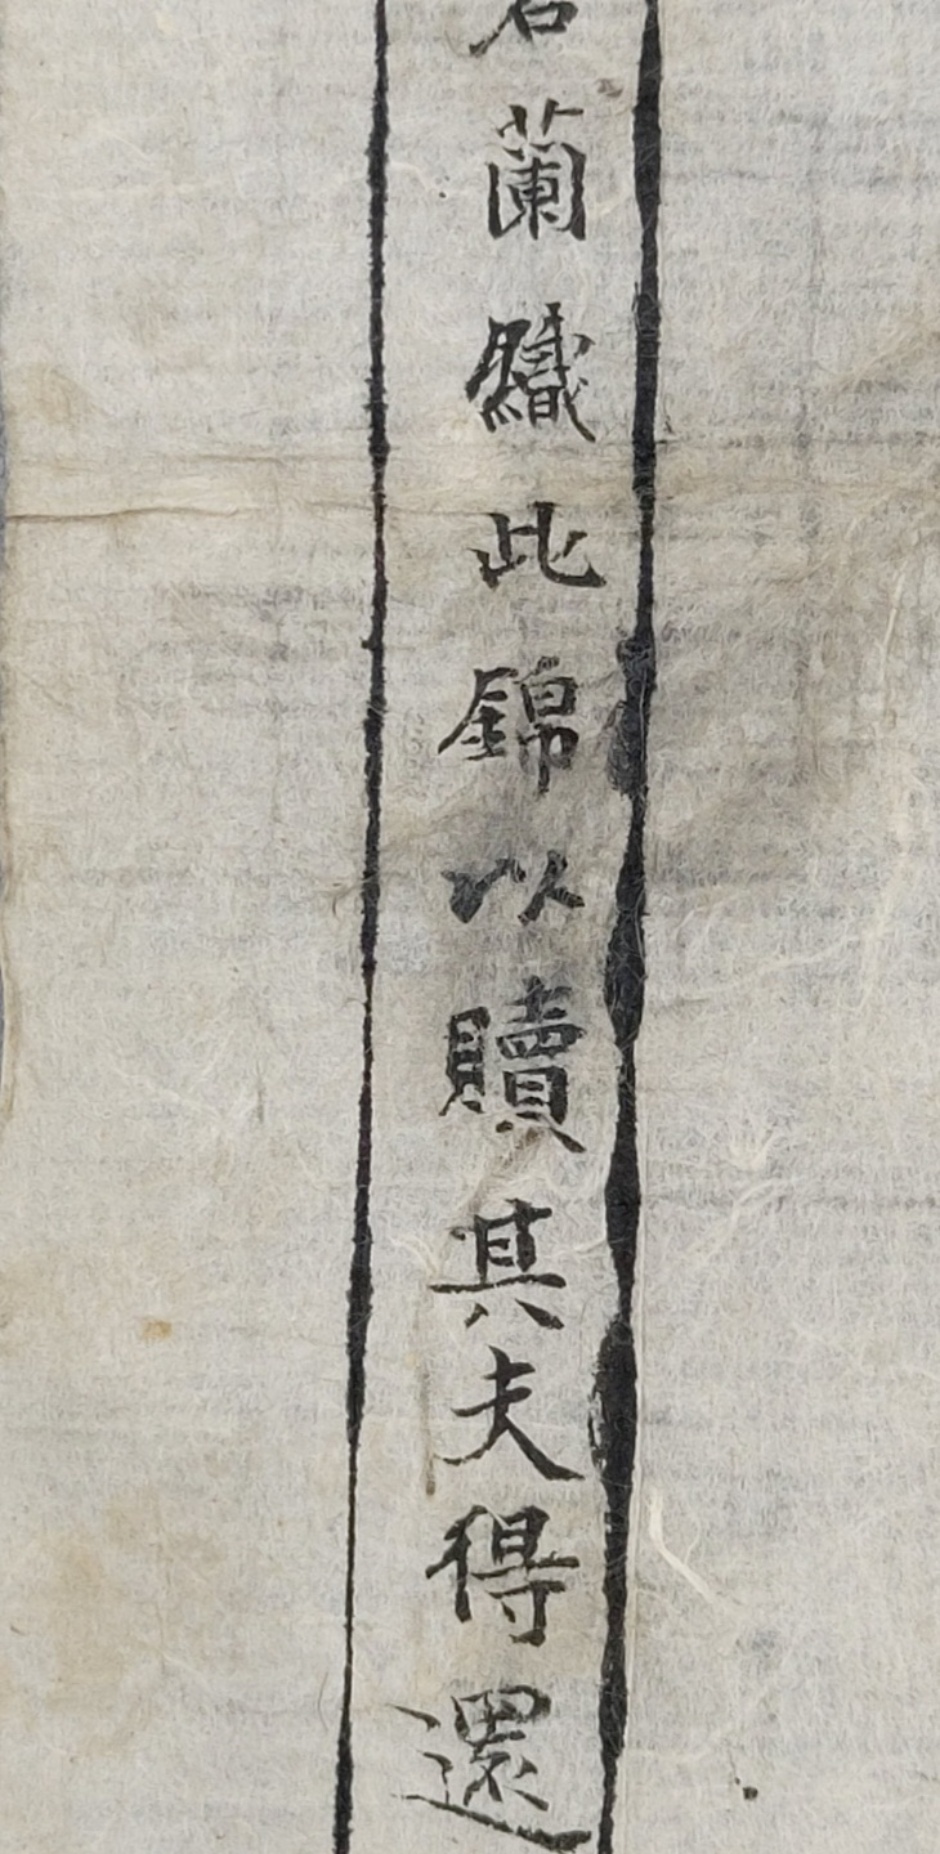 若蘭織此錦以贖其夫得還